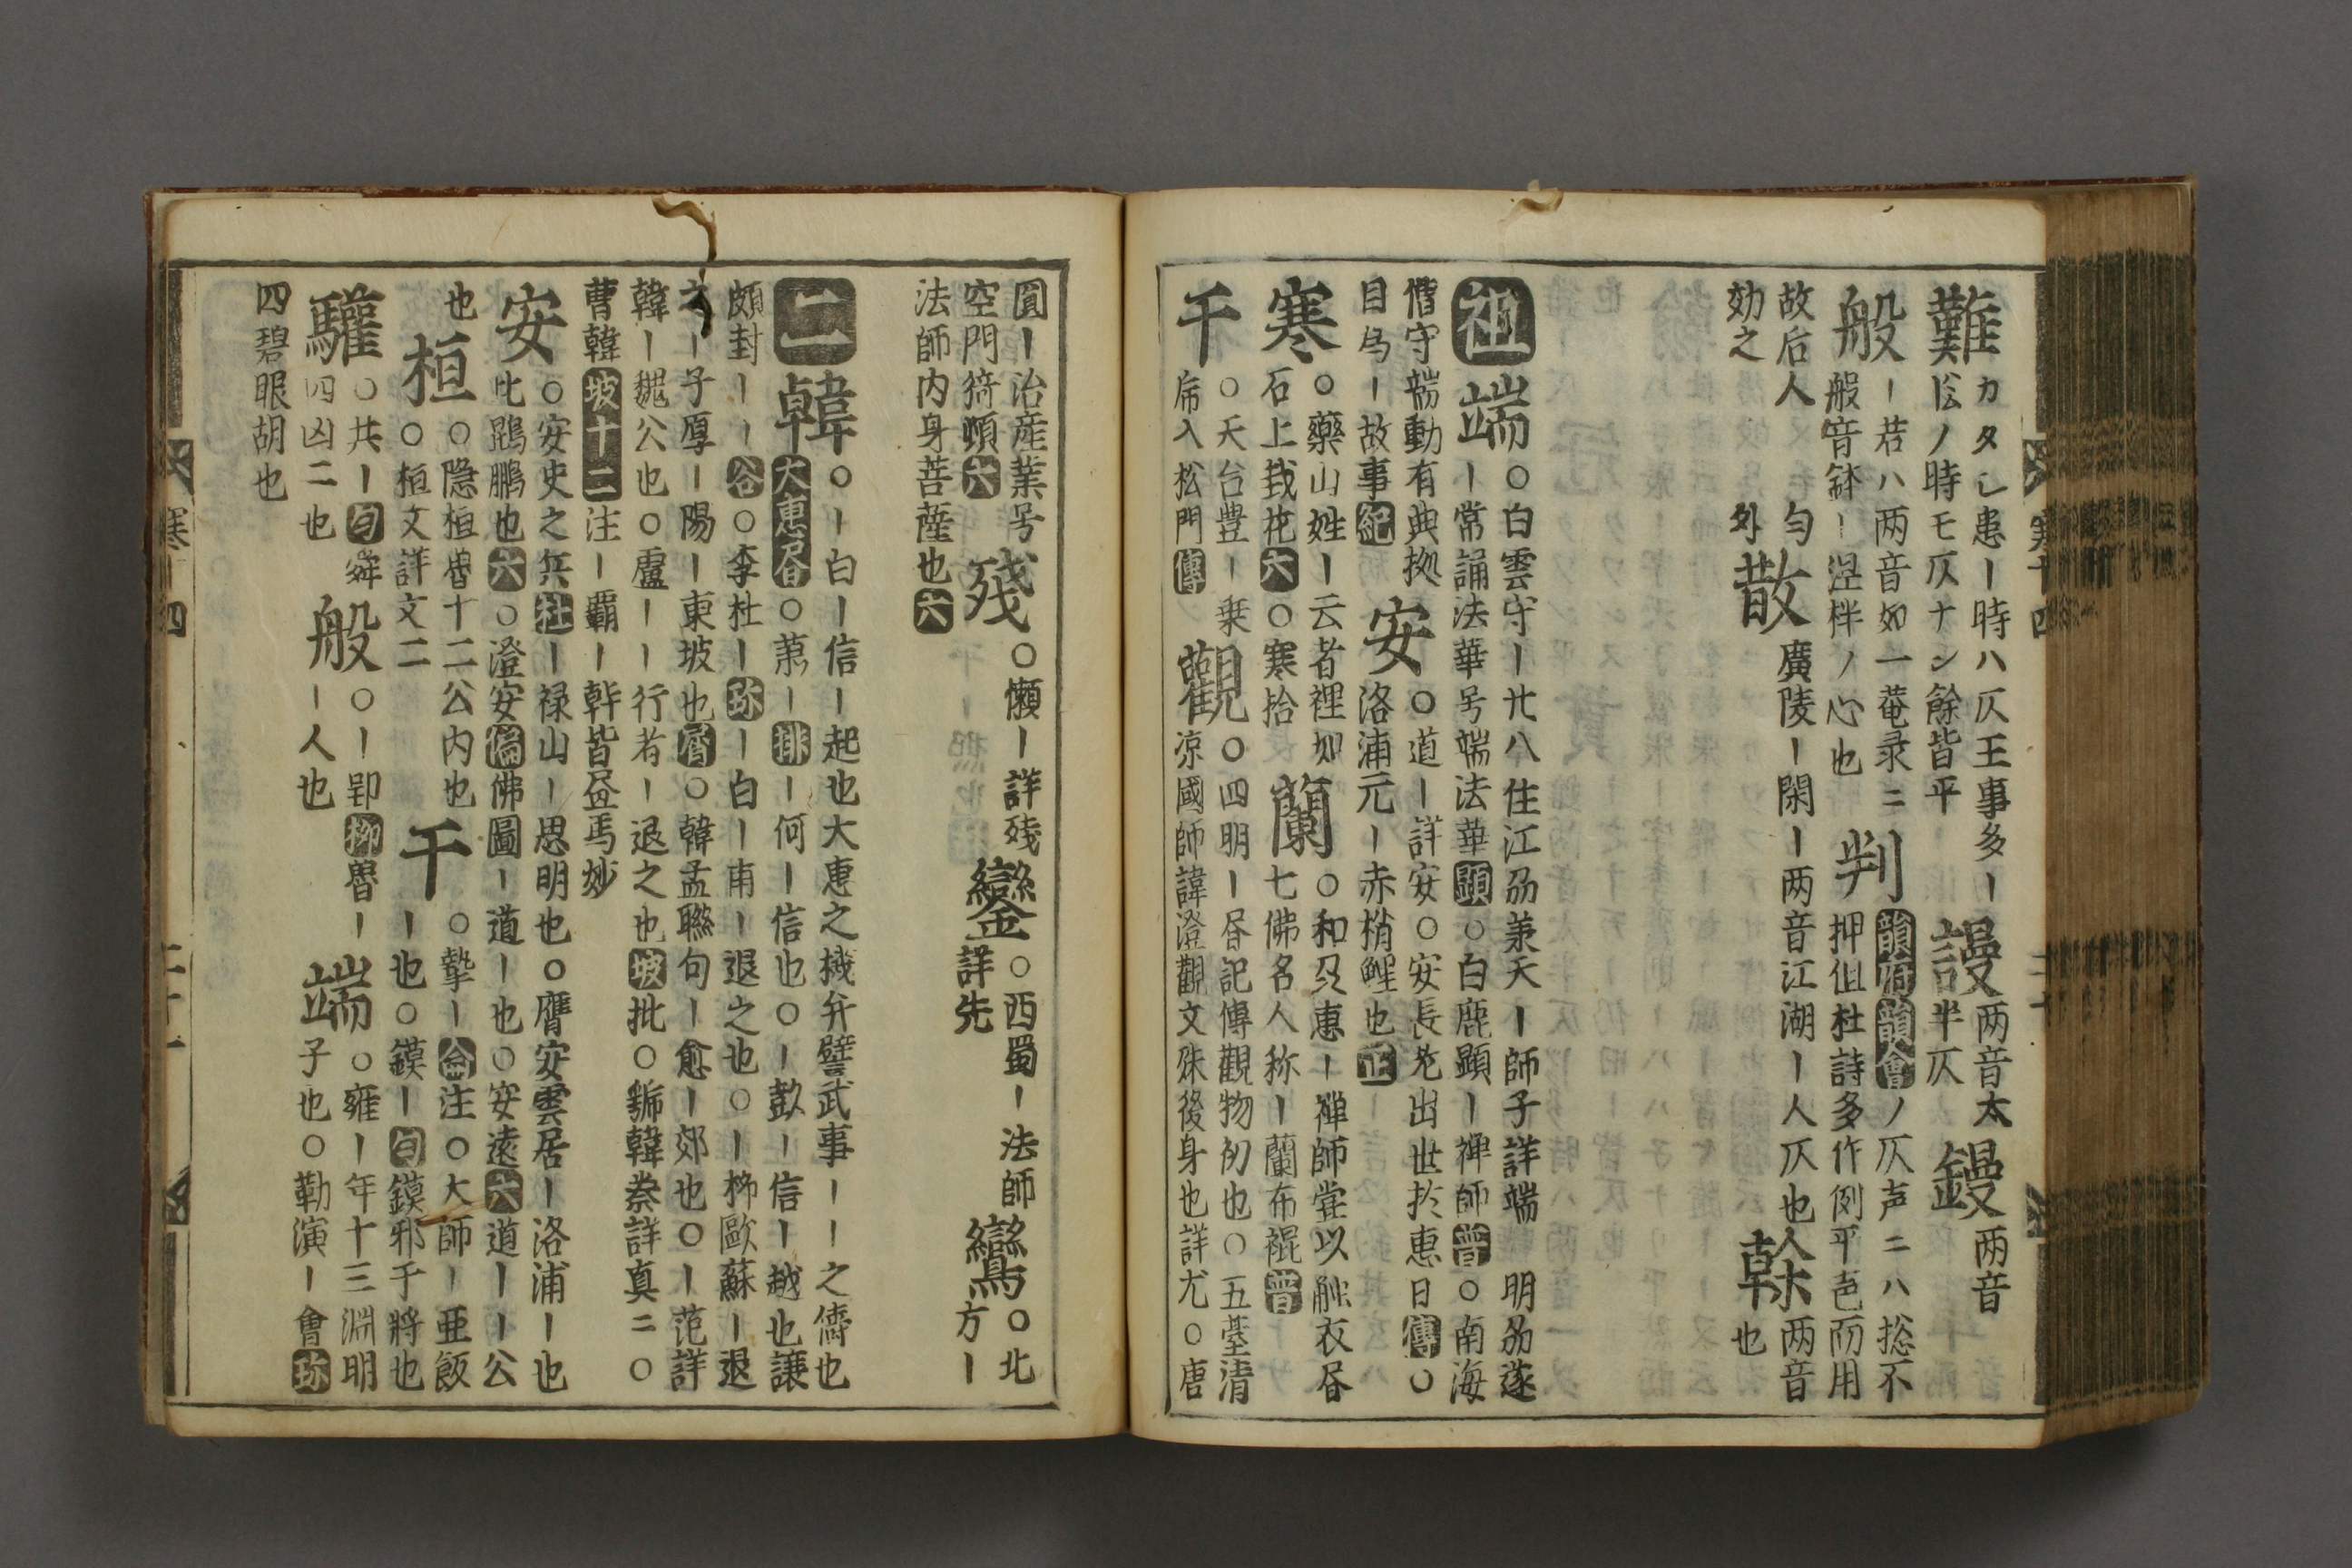 難 カタシ患ー時ハ仄王事多ー
ノ時モ仄ナシ餘皆平
謾 两音太
半仄
鏝 两音
般 ー若ハ两音如一菴录ニ
般音鉢ー涅ノ心也
判 韻府韻會ノ仄声ニハ捴不
押但杜詩多作例平声而用
故后人
効之
勻
外
散 廣陵ー閑ー两音江湖ー人仄也
幹 两音
也
祖
端 ○白雲守ー廿八住江刕兼天ー師子詳端 明刕遂
ー常誦法華号端法華顕○白鹿顕ー禅師普○南海
僭守端動有典拠
目為ー故事紀
安 ○道ー詳安○安長老出世於惠日傳○
洛浦元ー赤梢鯉也正
寒 ○藥山姓ー云者裡如
石上栽花六○寒拾
蘭 ○和尺惠ー禅師甞以衣
七佛名人称ー蘭布裩普
千 ○天台豊ー乗
席入松門傳
觀 ○四明ー記傳觀物初也○五䑓清
凉國師諱澄觀文殊後身也詳尤○唐
寒十四
圓ー治産業号
空門猗頓六
殘 ○懶ー詳殘
鑾 ○西蜀ー法師
詳先
鸞 ○北
方ー
法師内身菩薩也六
二
韓 ○ー白ー信ー起也大惠之機弁譬武事ーー之儔也
大惠○蕭ー排ー何ー信也○ー彭ー信ー越也譲
頗封ーー谷○李杜ー珎ー白ー甫ー退之也○ー柳歐蘇ー退
之ー子厚ー陽ー東坡也○韓孟聮句ー愈ー郊也○ー范詳
韓ー魏公也○盧ーー行者ー退之也坡批○韓詳真二○
曹韓坡十二注ー覇ー幹皆画馬妙
安 ○安史之兵杜ー禄山ー思明也○膺安雲居ー洛浦ー也
比鵾鵬也六○澄安佛圖ー道ー也○安遠六道ーー公
也
桓 ○隠桓魯十二公内也
○桓文詳文二
干 ○摯ー注○大師ー亜飯
ー也○鏌ー句鏌邪干將也
驩 ○共ー句舜
四凶二也
般 ○ー郢柳魯ー
ー人也
端 ○雍ー年十三淵明
子也○勒演ー會珎
四碧眼胡也
寒十四
二十一